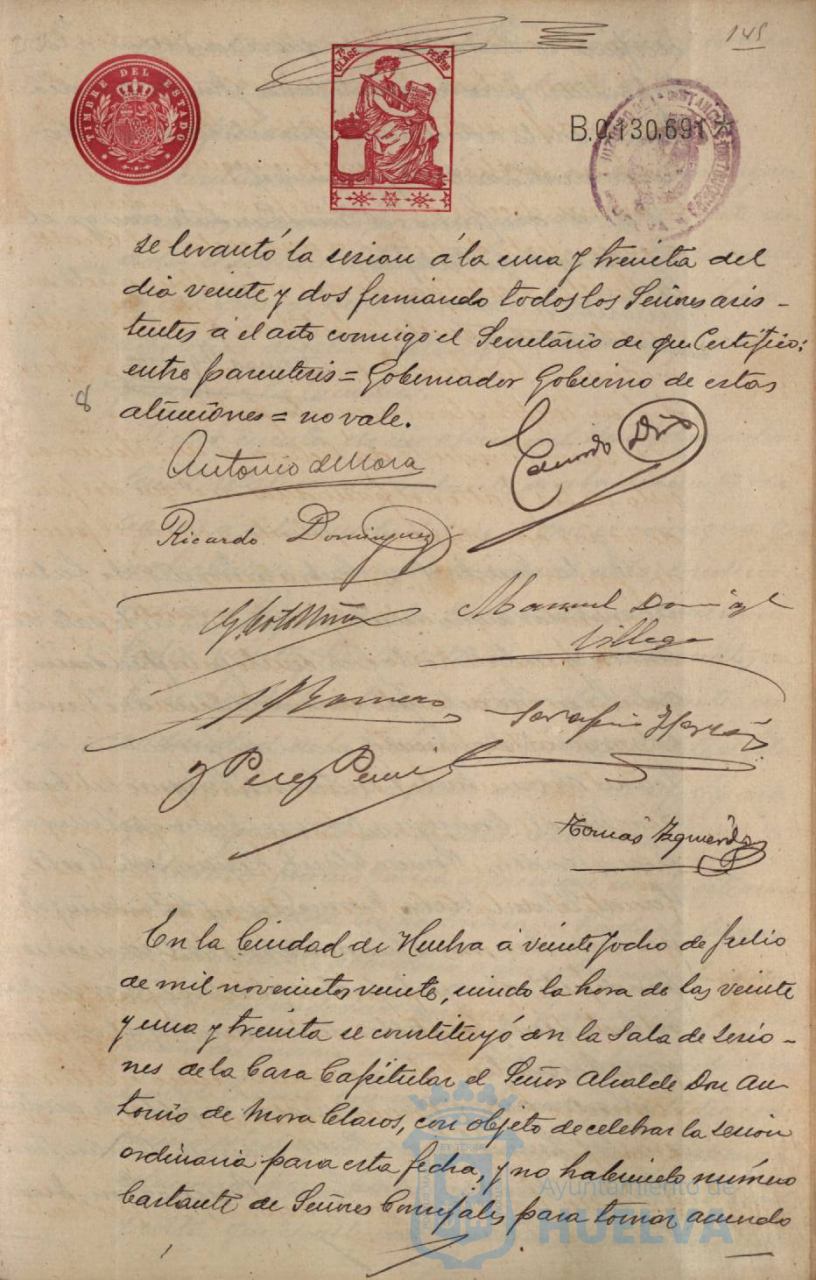 145
TIMBRE DEL ESTADO
7ª CLASE
PESETAS
B.0.130.691
se levantó la sesion á la una y treinta del
dia veinte y dos firmando todos los Señores asis-
tentes á el acto conmigo el Secretario de que Certifico:
entre parentesis = Gobernador Gobierno de estas
8
atenciones = no vale.
Antonio de Mora
Eduardo Diaz
Ricardo Dominguez
Manuel Dominguez
Villega
Romero
Serafin
J Perez
Tomás Izquierdo
En la Ciudad de Huelva á veinte y ocho de Julio
de mil novecientos veinte, siendo la hora de las veinte
y una y treinta se constituyó en la Sala de sesio-
nes de la Casa Capitular el Señor Alcalde Don An-
tonio de Mora Claros, con objeto de celebrar la sesion
ordinaria para esta fecha, y no habiendo número
bastante de Señores Concejales para tomar acuerdo
Ayuntamiento de
HUELVA